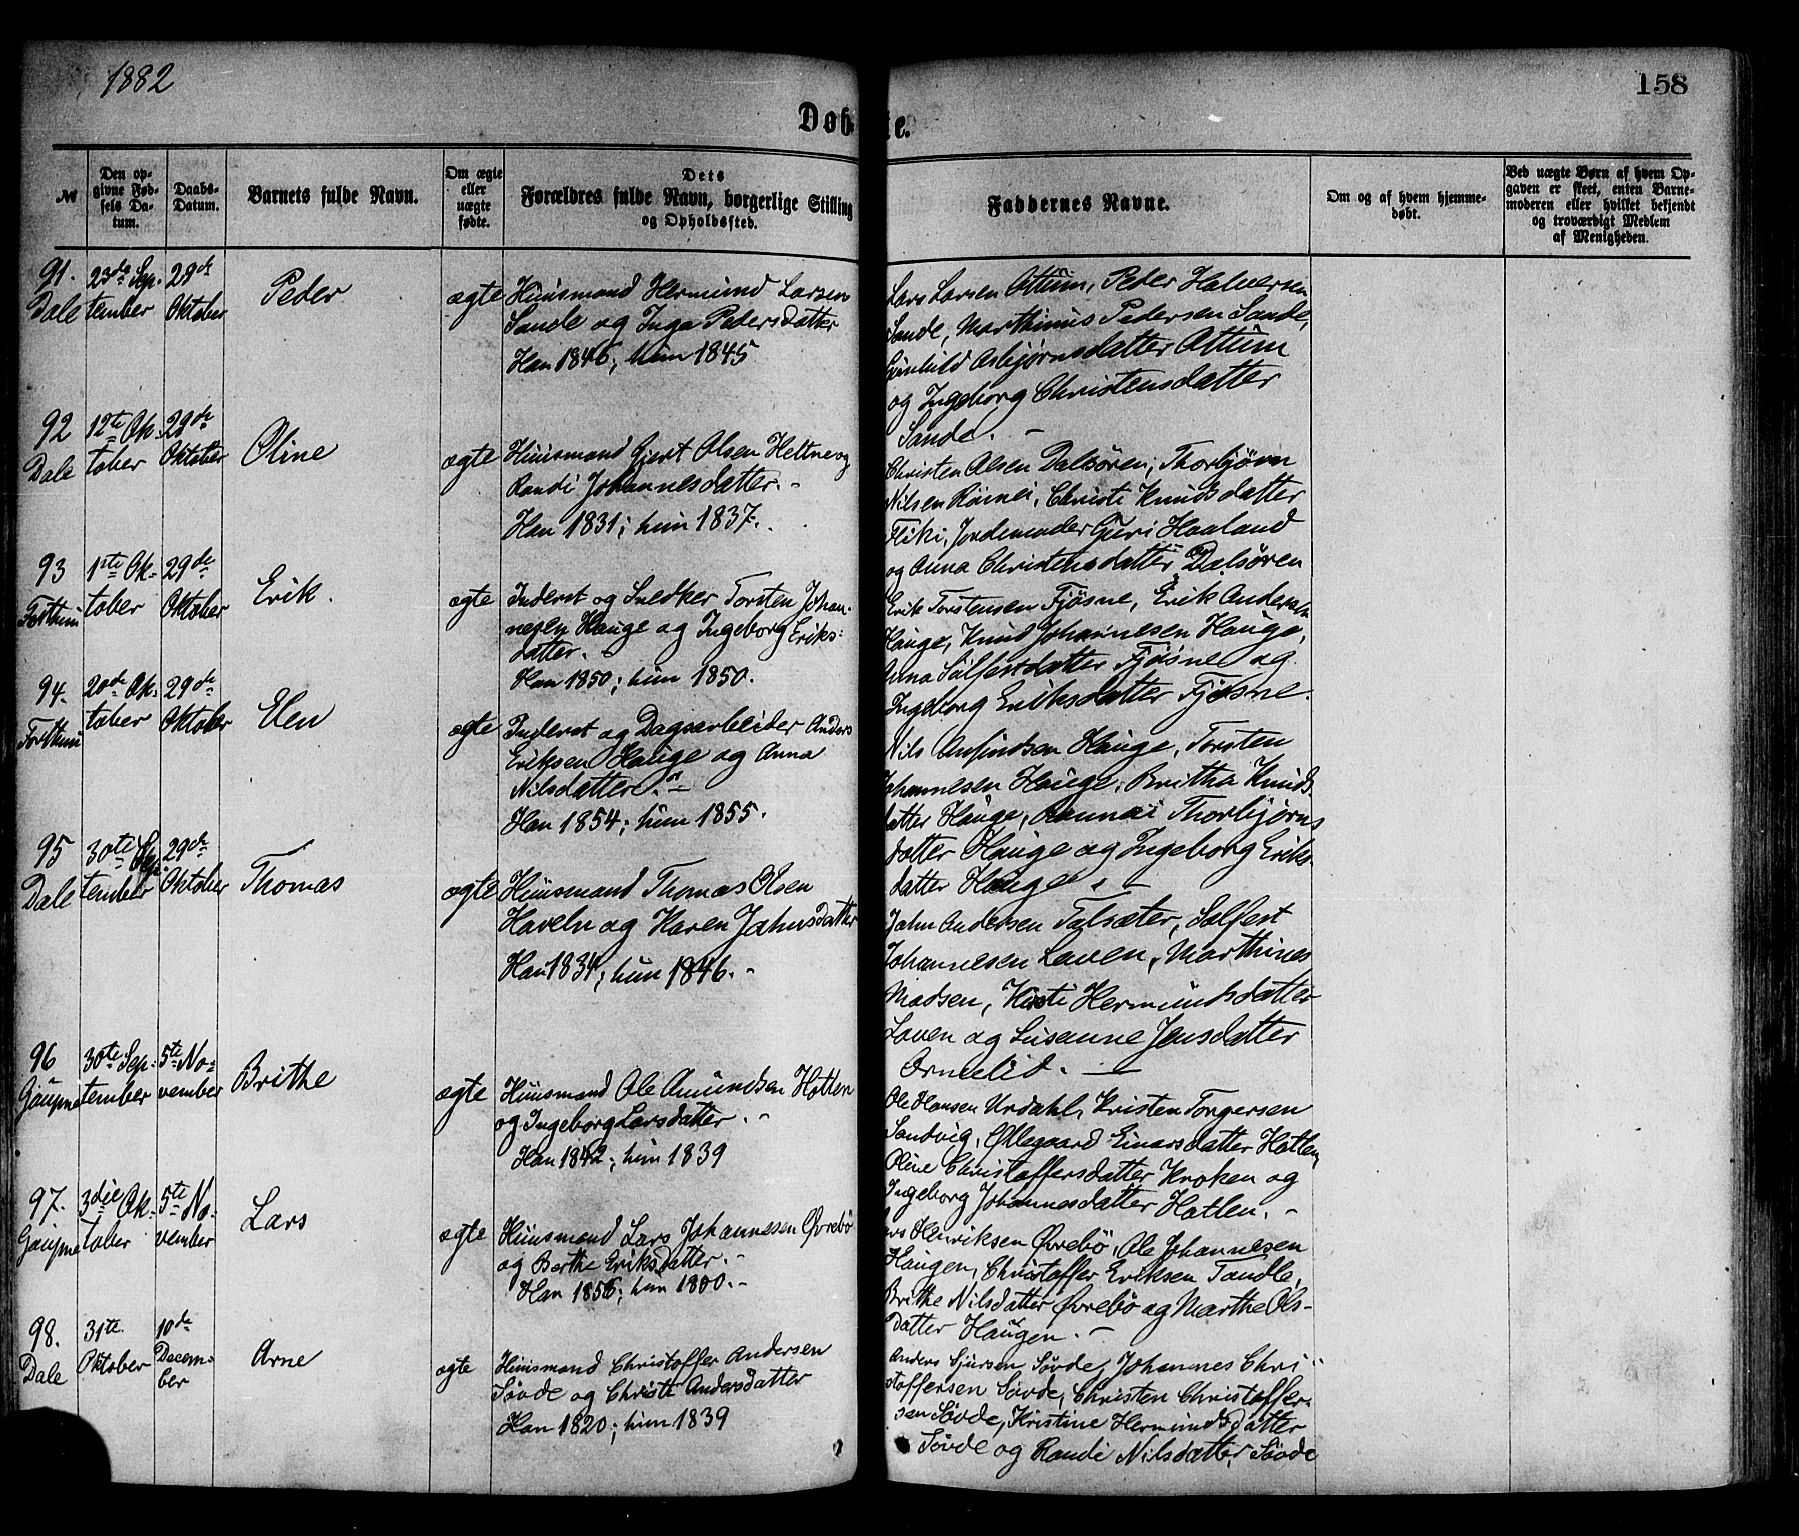 1882
158
Døbte.
№
Den op-
givne Fød-
sels Da-
tum.
Daabs-
Datum.
Barnets fulde Navn.
Om ægte
eller
uægte
fødte.
Dets
Forældres fulde Navn, borgerlige Stilling
og Opholdssted.
Faddernes Navne.
Om og af hvem hjemme-
døbt.
Ved uægte Børn af hvem Op-
gaven er skeet, enten Barne-
moderen eller hvilket bekjendt
og troværdigt Medlem
af Menigheden.
91.
Dale
23de Sep-
tember
29de
Oktober
Peder
ægte
Huusmand Hermund Larsen
Sande og Inga Pedersdatter
Han 1846; hun 1845
Lars Larsen Ottum, Peder Halvorsen
Sande, Marthinus Pedersen Sande,
Asbjørnsdatter Ottum
og Ingeborg Christensdatter
Sande. -
92
Dale
12te Ok-
tober
29de
Oktober
Oline
ægte
Huusmand Gjert Olsen Heltne og
Randi Johannesdatter. -
Han 1831; hun 1837. -
Christen Olsen Dalsøren, Thorbjørn
Nilsen Røinei, Christi Knudsdatter
Fliki, Jordemoder Guri Haaland
og Anna Christensdatter Dalsøren
93
Fortthun
1ste Ok-
tober
29de
Oktober
Erik.
ægte
Inderst og Snedker Torsten Johan-
nesen Hauge og Ingeborg Eriks-
datter. -
Han 1850; hun 1850.
Erik Torstensen Fjøsne, Erik Andersen
Hauge, Knud Johannesen Hauge,
Anna Sølfestdatter Fjøsne og
Ingeborg Eriksdatter Fjøsne.
94.
Fortthun
20de Ok-
tober
29de
Oktober
Elen
ægte
Inderst og Dagsarbeider Anders
Eriksen Hauge og Anna
Nilsdatter. -
Han 1854; hun 1855.
Nils Anfindsen Hauge, Torsten
Johannesen Hauge, Britha Knuds-
datter Hauge, Rannei Thorbjørns
datter Hauge og Ingeborg Eriks-
datter Hauge. -
95
Dale
30te Sep-
tember
29de
Oktober
Thomas
ægte
Huusmand Thomas Olsen
Haveln og Karen Johnsdatter
Han 1834; hun 1846. -
John Andersen Talsæter, Solfest
Johannesen Loven, Marthines
Madsen, Kristi Hermundsdatter
Loven og Susanne Jensdatter
Ormelid. -
96
Gaupne
30te Sep-
tember
5te No-
vember
Brithe
ægte
Huusmand Ole Amundsen Hatlen
og Ingeborg Larsdatter. -
Han 1842; hun 1839
Ole Hansen Urdahl, Kristen Torgersen
Sandvig, Øllegaard Einarsdatter Hatlen,
Oline Christoffersdatter Kroken og
Ingeborg Johannesdatter Hatlen. -
97.
Gaupne
3die Ok-
tober
5te No-
vember
Lars
ægte
Huusmand Lars Johannesen Øvrebø
og Berthe Eriksdatter. -
Han 1856; hun 1860. -
Lars Henriksen Øvrebø, Ole Johannesen
Haugen, Christoffer Eriksen Tandle,
Brithe Nilsdatter Øvrebø og Marthe Ols-
datter Haugen. -
98.
Dale
31te
Oktober
10de
Decem-
ber
Arne
ægte
Huusmand Christoffer Andersen
Søvde og Christi Andersdatter
Han 1820; hun 1839
Anders Sjursen Søvde, Johannes Chri-
stoffersen Søvde, Christen Christoffer-
sen Søvde, Kristine Hermundsdatter
Søvde og Randi Nilsdatter Søvde